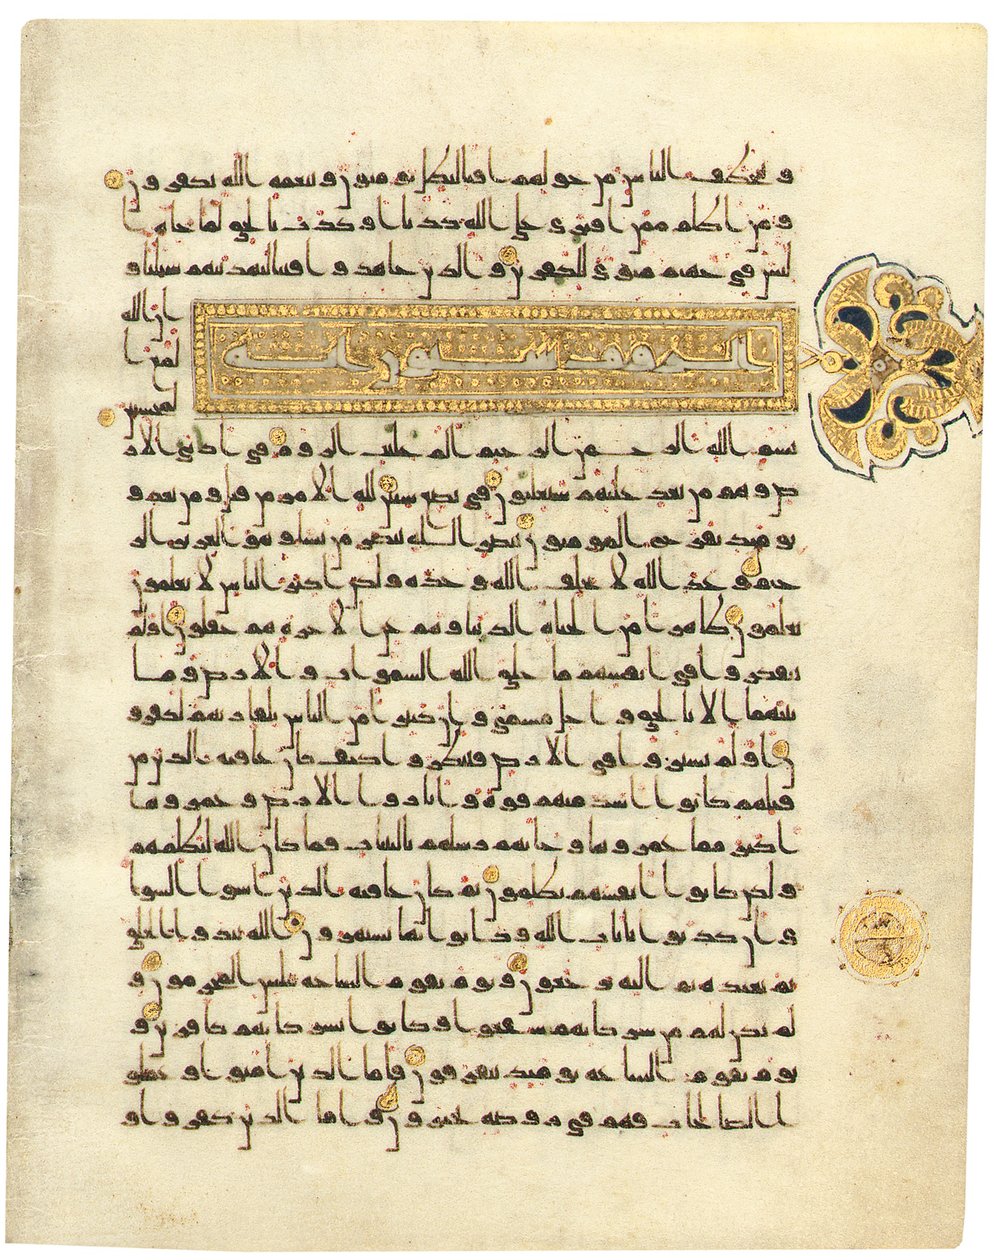 و يتخطف الناس من حولهم افبالبطل يومنون و بنعمه الله يكفرون
و من اظلم ممن افترى على الله كذبا او كذب بالحق لما جاه ا
ليس في جهنم مثوى للكفرين و الذين جاهدوا فينا لنهدينهم سبلنا و
ان الله
لمع ا
لمحسنين
الروم ستون ايه
بسم الله الرحمن الرحيم الم غلبت الروم في ادنى الار
ض و هم من بعد غلبهم سيغلبون في بضع سنين لله الامر من قبل و من بعد و
يومئذ يفرح المومنون بنصر الله ينصر من يشا و هو العزيز الر
حيم وعد الله لا يخلف الله وعده و لكن اكثر الناس لا يعلمون
يعلمون ظاهرا من الحياه الدنيا و هم عن الاخره هم غفلون اولم
يتفكروا في انفسهم ما خلق الله السموات و الارض و ما
بينهما الا بالحق و اجل مسمى و ان كثيرا من الناس بلقاى ربهم لكفرو
ن اولم يسيروا في الارض فينظروا كيف كان عاقبه الذين من
قبلهم كانوا اشد منهم قوه و اثاروا الارض و عمروها ا
كثر مما عمروها و جاتهم رسلهم بالبينات فما كان الله ليظلمهم
و لكن كانوا انفسهم يظلمون ثم كان عاقبه الذين اسوا السوا
ى ان كذبوا بايات الله و كانوا بها يستهزون الله يبدوا الخلق
ثم يعيده ثم اليه ترجعون و يوم تقوم الساعه يبلس المجرمون و
لم يكن لهم من شركايهم شفعوا و كانوا بشركايهم كافرين و
يوم تقوم الساعه يومئذ يتفرقون فاما الذين امنوا و عملو
ا الصالحات فهم في روضه يحبرون و اما الذين كفروا و